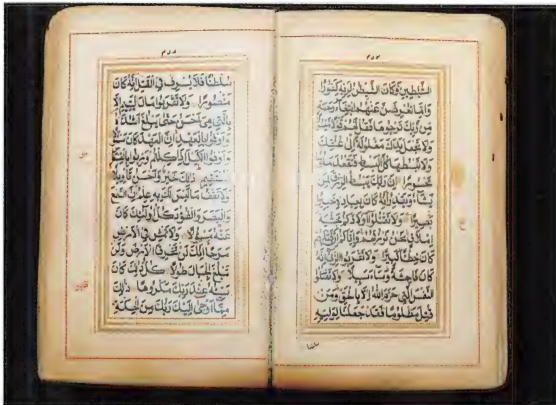 الشيطين وكان الشيطن لربه كفورا
واما تعرضن عنهم ابتغاء رحمة
من ربك ترجوها فقل لهم قولا ميسورا
ولا تجعل يدك مغلولة الى عنقك
ولا تبسطها كل البسط فتقعد ملوما
محسورا ان ربك يبسط الرزق لمن
يشاء ويقدر انه كان بعباده خبيرا
بصيرا ولا تقتلوا اولادكم خشية
املاق نحن نرزقهم واياكم ان قتلهم
كان خطئا كبيرا ولا تقربوا الزنى انه
كان فاحشة وساء سبيلا ولا تقتلوا
النفس التي حرم الله الا بالحق ومن
قتل مظلوما فقد جعلنا لوليه
سلطنا
سلطنا فلا يسرف في القتل انه كان
منصورا ولا تقربوا مال اليتيم الا
بالتي هي احسن حتى يبلغ اشده
واوفوا بالعهد ان العهد كان مسئولا
واوفوا الكيل اذا كلتم وزنوا بالقسطاس
المستقيم ذلك خير واحسن تأويلا
ولا تقف ما ليس لك به علم ان السمع
والبصر والفؤاد كل اولئك كان
عنه مسئولا ولا تمش في الارض
مرحا انك لن تخرق الارض ولن
تبلغ الجبال طولا كل ذلك كان
سيئه عند ربك مكروها ذلك
مما اوحى اليك ربك من الحكمة